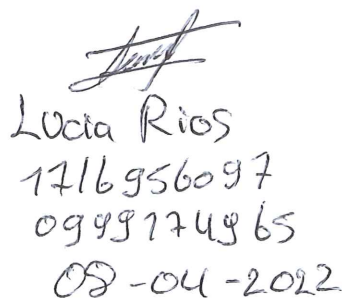 Lucia Rios
1716956097
0999174965
08-04-2022